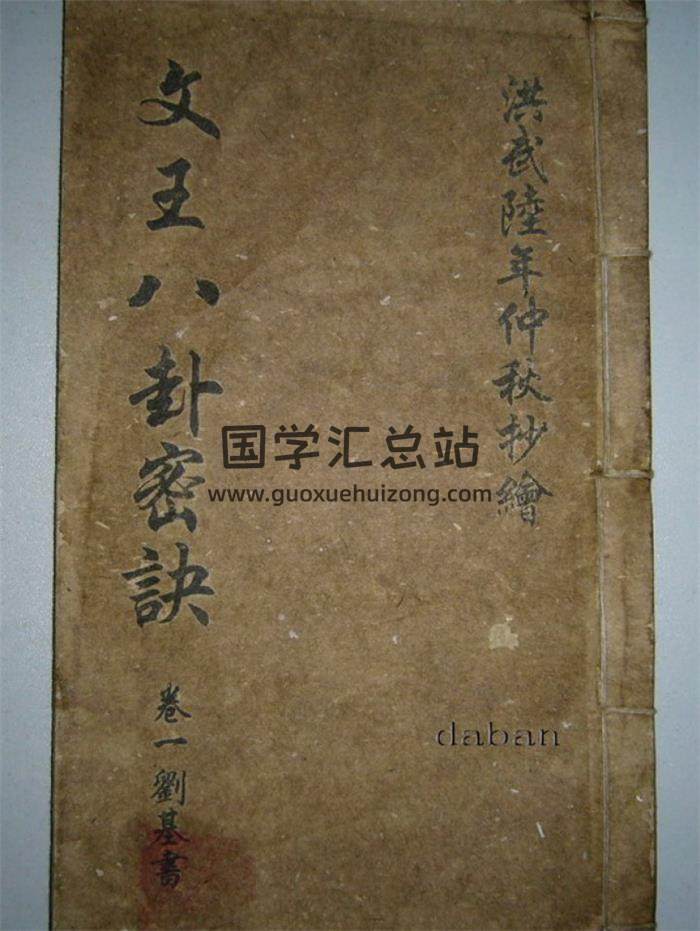 洪武陸年仲秋抄繪
文王八卦密訣
卷一劉基書
国学汇总站
www.guoxuehuizong.com
daban